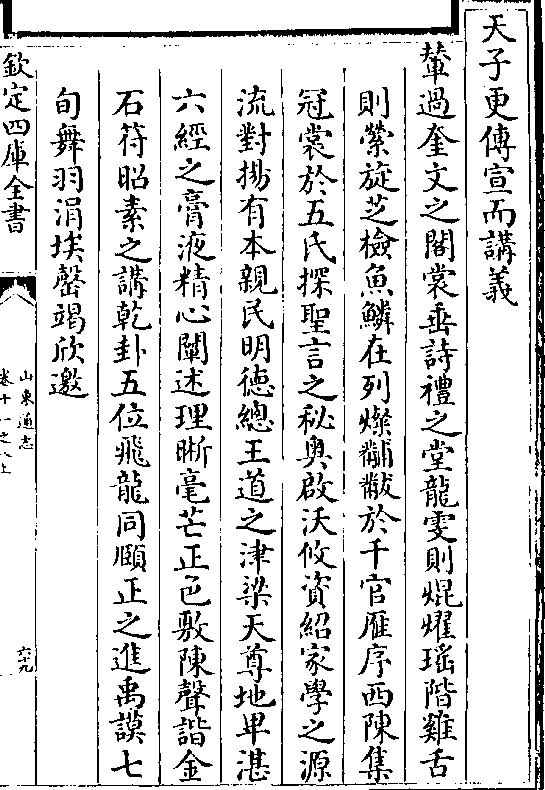 天子更傳宣而講義
輦過奎文之閣裳垂詩禮之堂龍雯則焜燿瑤階雞舌
則縈旋芝檢魚鱗在列燦黼黻於千官雁序西陳集
冠裳於五氏探聖言之秘奥啟沃攸資紹家學之源
流對揚有本親民明德總王道之津梁天尊地卑湛
六經之膏液精心闡述理晰毫芒正色敷陳聲諧金
石符昭素之講乾卦五位飛龍同頤正之進禹謨七
旬舞羽涓埃罄竭欣邀
欽定四庫全書
山東通志
卷十一之八上
六十九